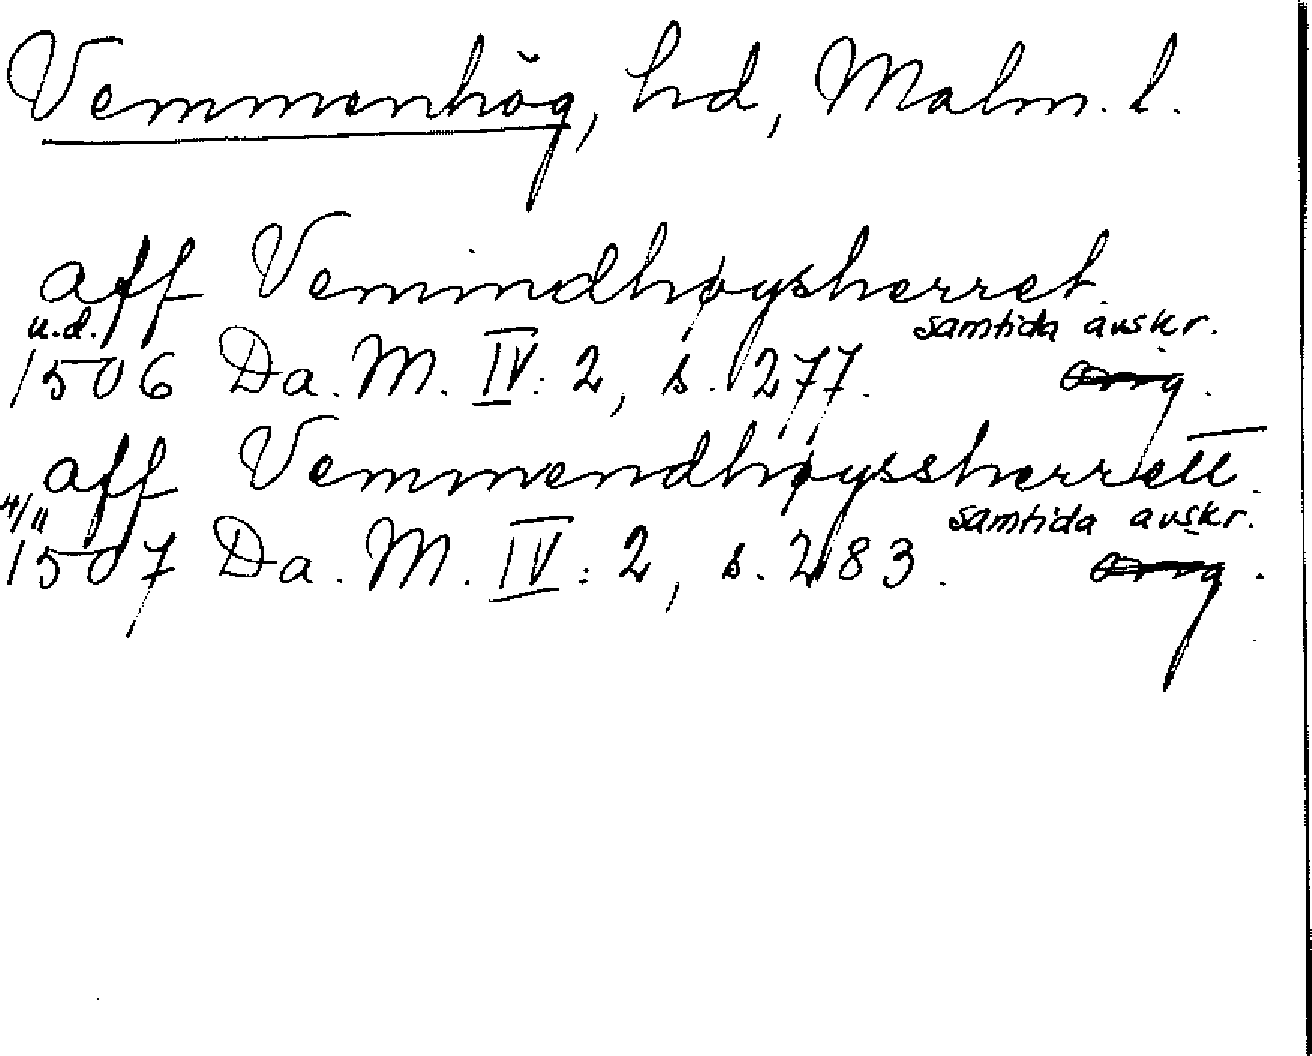 Vemmenhög, hd, Malm. l.
aff Vemindhøysherret.
u.d. samtida avskr.
1506 Da. M. IV: 2, s. 277. Orig.
aff Vemmendhøyssherrett.
4/11 samtida avskr.
1507 Da. M. IV: 2, s. 283. Orig.